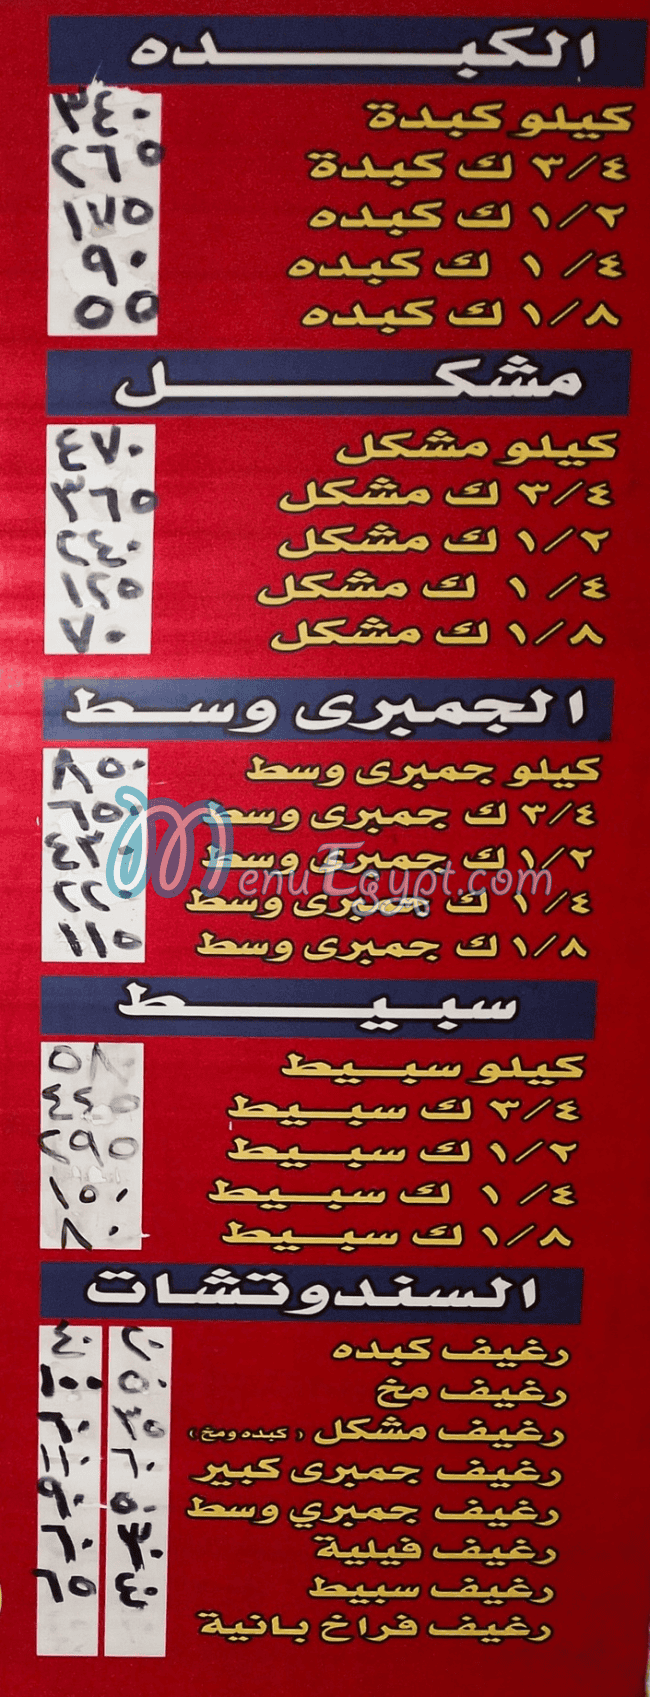 الكبده
كيلو كبدة ٣٤٠
٣/٤ ك كبدة ٢٦٥
١/٢ ك كبده ١٧٥
١/٤ ك كبده ٩٠
١/٨ ك كبده ٥٥
مشكل
كيلو مشكل ٤٧٠
٣/٤ ك مشكل ٣٦٥
١/٢ ك مشكل ٢٤٠
١/٤ ك مشكل ١٢٥
١/٨ ك مشكل ٧٠
الجمبرى وسط
كيلو جمبرى وسط ٨٥٠
٣/٤ ك جمبرى وسط ٦٥٠
١/٢ ك جمبرى وسط ٤٣٠
١/٤ ك جمبرى وسط ٢٢٠
١/٨ ك جمبرى وسط ١١٥
MenuEgypt.com
سبيط
كيلو سبيط ٥٨٠
٣/٤ ك سبيط ٤٤٥
١/٢ ك سبيط ٢٩٥
١/٤ ك سبيط ١٥٠
١/٨ ك سبيط ٨٠
السندوتشات
رغيف كبده ٢٠ ٤٠
رغيف مخ ٥٠ ١٠٠
رغيف مشكل (كبده ومخ) ٣٥
رغيف جمبرى كبير ٦٠ ١١٠
رغيف جمبري وسط ٥٠ ٩٠
رغيف فيلية ٣٠ ٦٠
رغيف سبيط ٤٠ ٦٥
رغيف فراخ بانية